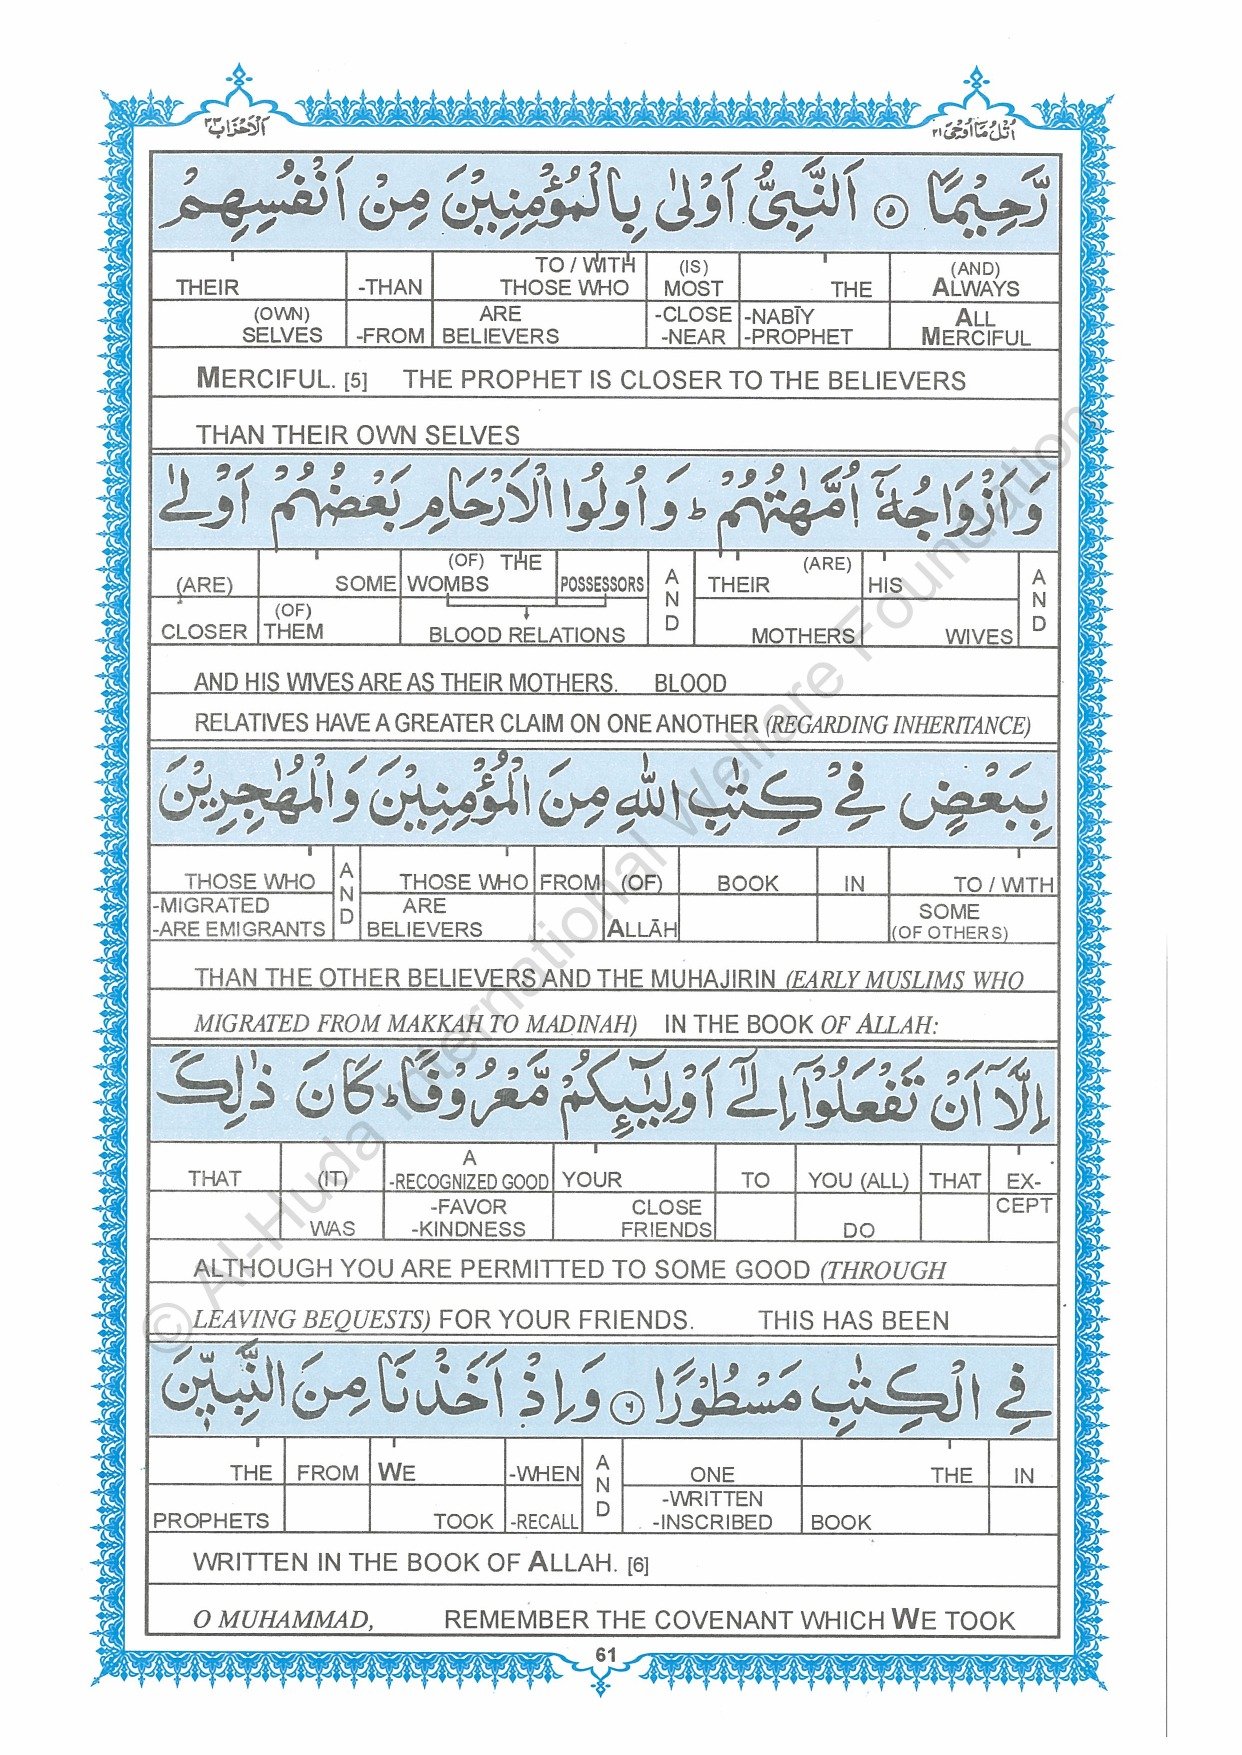 اُتْلُ مَا اُوْحِیَ ٢١
اَلْاَحْزَاب ٣٣
رَّحِیْمًا ۝٥ اَلنَّبِیُّ اَوْلٰی بِالْمُؤْمِنِیْنَ مِنْ اَنْفُسِهِمْ
THEIR -THAN TO / WITH THOSE WHO (IS) MOST THE (AND) ALWAYS
(OWN) SELVES -FROM ARE BELIEVERS -CLOSE -NEAR -NABĪY -PROPHET ALL MERCIFUL
MERCIFUL. [5] THE PROPHET IS CLOSER TO THE BELIEVERS
THAN THEIR OWN SELVES
وَ اَزْوَاجُهٗۤ اُمَّهٰتُهُمْ ؕ وَ اُولُوا الْاَرْحَامِ بَعْضُهُمْ اَوْلٰی
(ARE) SOME (OF) THE WOMBS POSSESSORS AND THEIR (ARE) HIS AND
CLOSER (OF) THEM BLOOD RELATIONS MOTHERS WIVES
AND HIS WIVES ARE AS THEIR MOTHERS. BLOOD
RELATIVES HAVE A GREATER CLAIM ON ONE ANOTHER (REGARDING INHERITANCE)
بِبَعْضٍ فِیْ كِتٰبِ اللّٰهِ مِنَ الْمُؤْمِنِیْنَ وَ الْمُهٰجِرِیْنَ
THOSE WHO AND THOSE WHO FROM (OF) BOOK IN TO / WITH
-MIGRATED -ARE EMIGRANTS ARE BELIEVERS ALLĀH SOME (OF OTHERS)
THAN THE OTHER BELIEVERS AND THE MUHAJIRIN (EARLY MUSLIMS WHO
MIGRATED FROM MAKKAH TO MADINAH) IN THE BOOK OF ALLAH:
اِلَّاۤ اَنْ تَفْعَلُوْۤا اِلٰۤی اَوْلِیٰٓىِٕكُمْ مَّعْرُوْفًا ؕ كَانَ ذٰلِكَ
THAT (IT) A -RECOGNIZED GOOD YOUR TO YOU (ALL) THAT EX-
WAS -FAVOR -KINDNESS CLOSE FRIENDS DO CEPT
ALTHOUGH YOU ARE PERMITTED TO SOME GOOD (THROUGH
LEAVING BEQUESTS) FOR YOUR FRIENDS. THIS HAS BEEN
فِی الْكِتٰبِ مَسْطُوْرًا ۝٦ وَ اِذْ اَخَذْنَا مِنَ النَّبِیّٖنَ
THE FROM WE -WHEN AND ONE THE IN
PROPHETS TOOK -RECALL -WRITTEN -INSCRIBED BOOK
WRITTEN IN THE BOOK OF ALLAH. [6]
O MUHAMMAD, REMEMBER THE COVENANT WHICH WE TOOK
61
© Al-Huda International Welfare Foundation